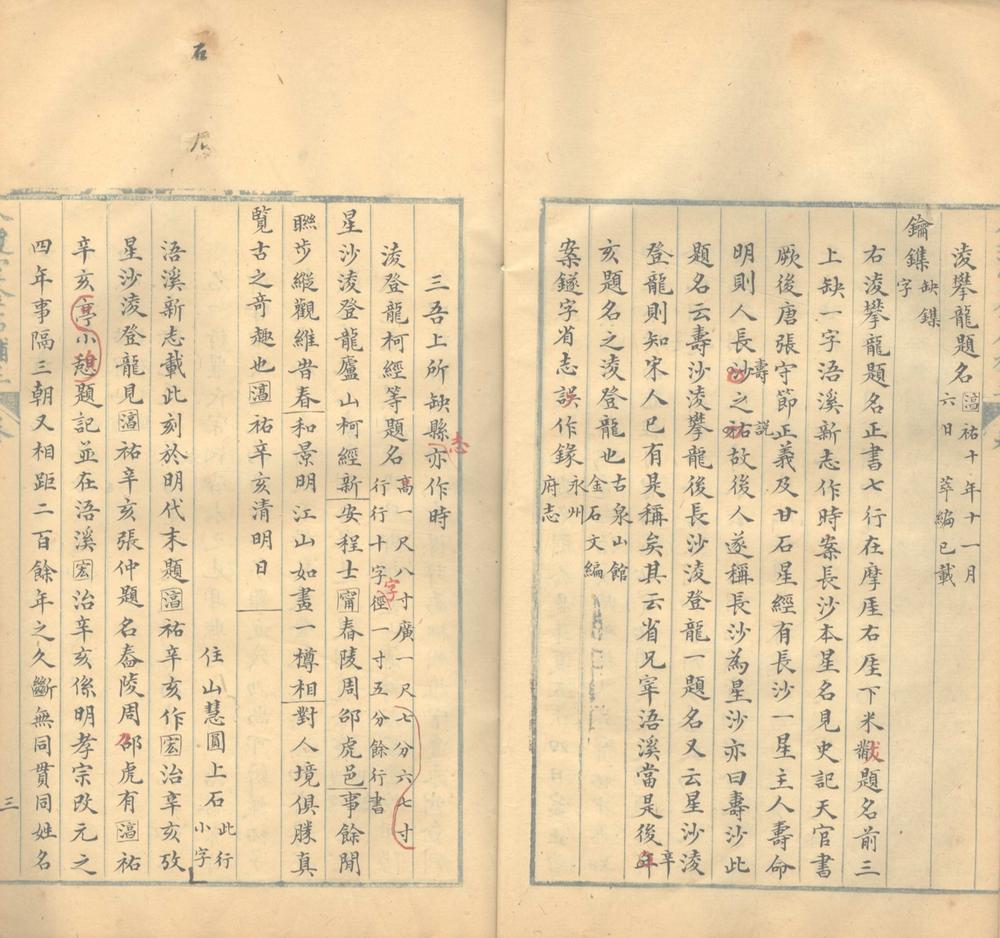 淩攀龍題名 𣸣祐十年十一月
六日 萃編已載
鑰鏶 缺鏶
字
右淩攀龍題名正書七行在摩厓右厓下米黻題名前三
上缺一字浯溪新志作時案長沙本星名見史記天官書
厥後唐張守節正義及甘石星經有長沙一星主人壽命
明則人長壽之說故後人遂稱長沙為星沙亦曰壽沙此
題名云壽沙淩攀龍後長沙淩登龍一題名又云星沙淩
登龍則知宋人已有是稱矣其云省兄宰浯溪當是後辛
亥題名之淩登龍也 古泉山館
金石文編
案鐩字省志誤作鎵 永州
府志
三吾上所缺縣志亦作時
淩登龍柯經等題名 高一尺八寸廣一尺七分六七寸
行行十字字徑一寸五分餘行書
星沙淩登龍廬山柯經新安程士甯舂陵周邵虎邑事餘閒
聯步縱觀維昔春和景明江山如畫一樽相對人境俱勝真
覽古之奇趣也𣸣祐辛亥清明日
住山慧圓上石 此行
小字
浯溪新志載此刻於明代末題𣸣祐辛亥作宏治辛亥攷
星沙淩登龍見𣸣祐辛亥張仲題名舂陵周邵虎有𣸣祐
辛亥亭小憩題記並在浯溪宏治辛亥係明孝宗改元之
四年事隔三朝又相距二百餘年之久斷無同貫同姓名
三
石